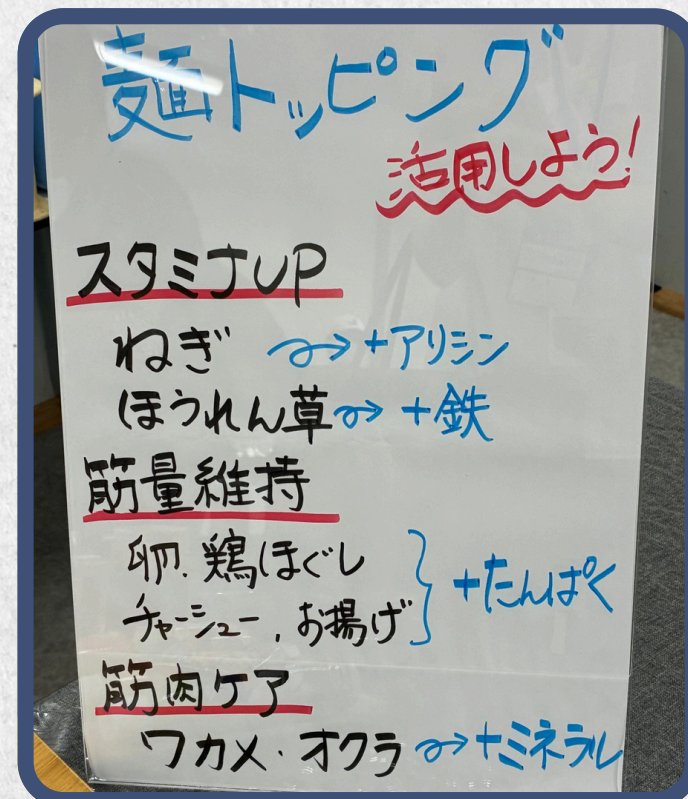 麺トッピング
活用しよう!
スタミナUP
ねぎ → +アリシン
ほうれん草→ +鉄
筋量維持
卵、鶏ほぐし
チャーシュー、お揚げ } +たんぱく
筋肉ケア
ワカメ・オクラ→+ミネラル